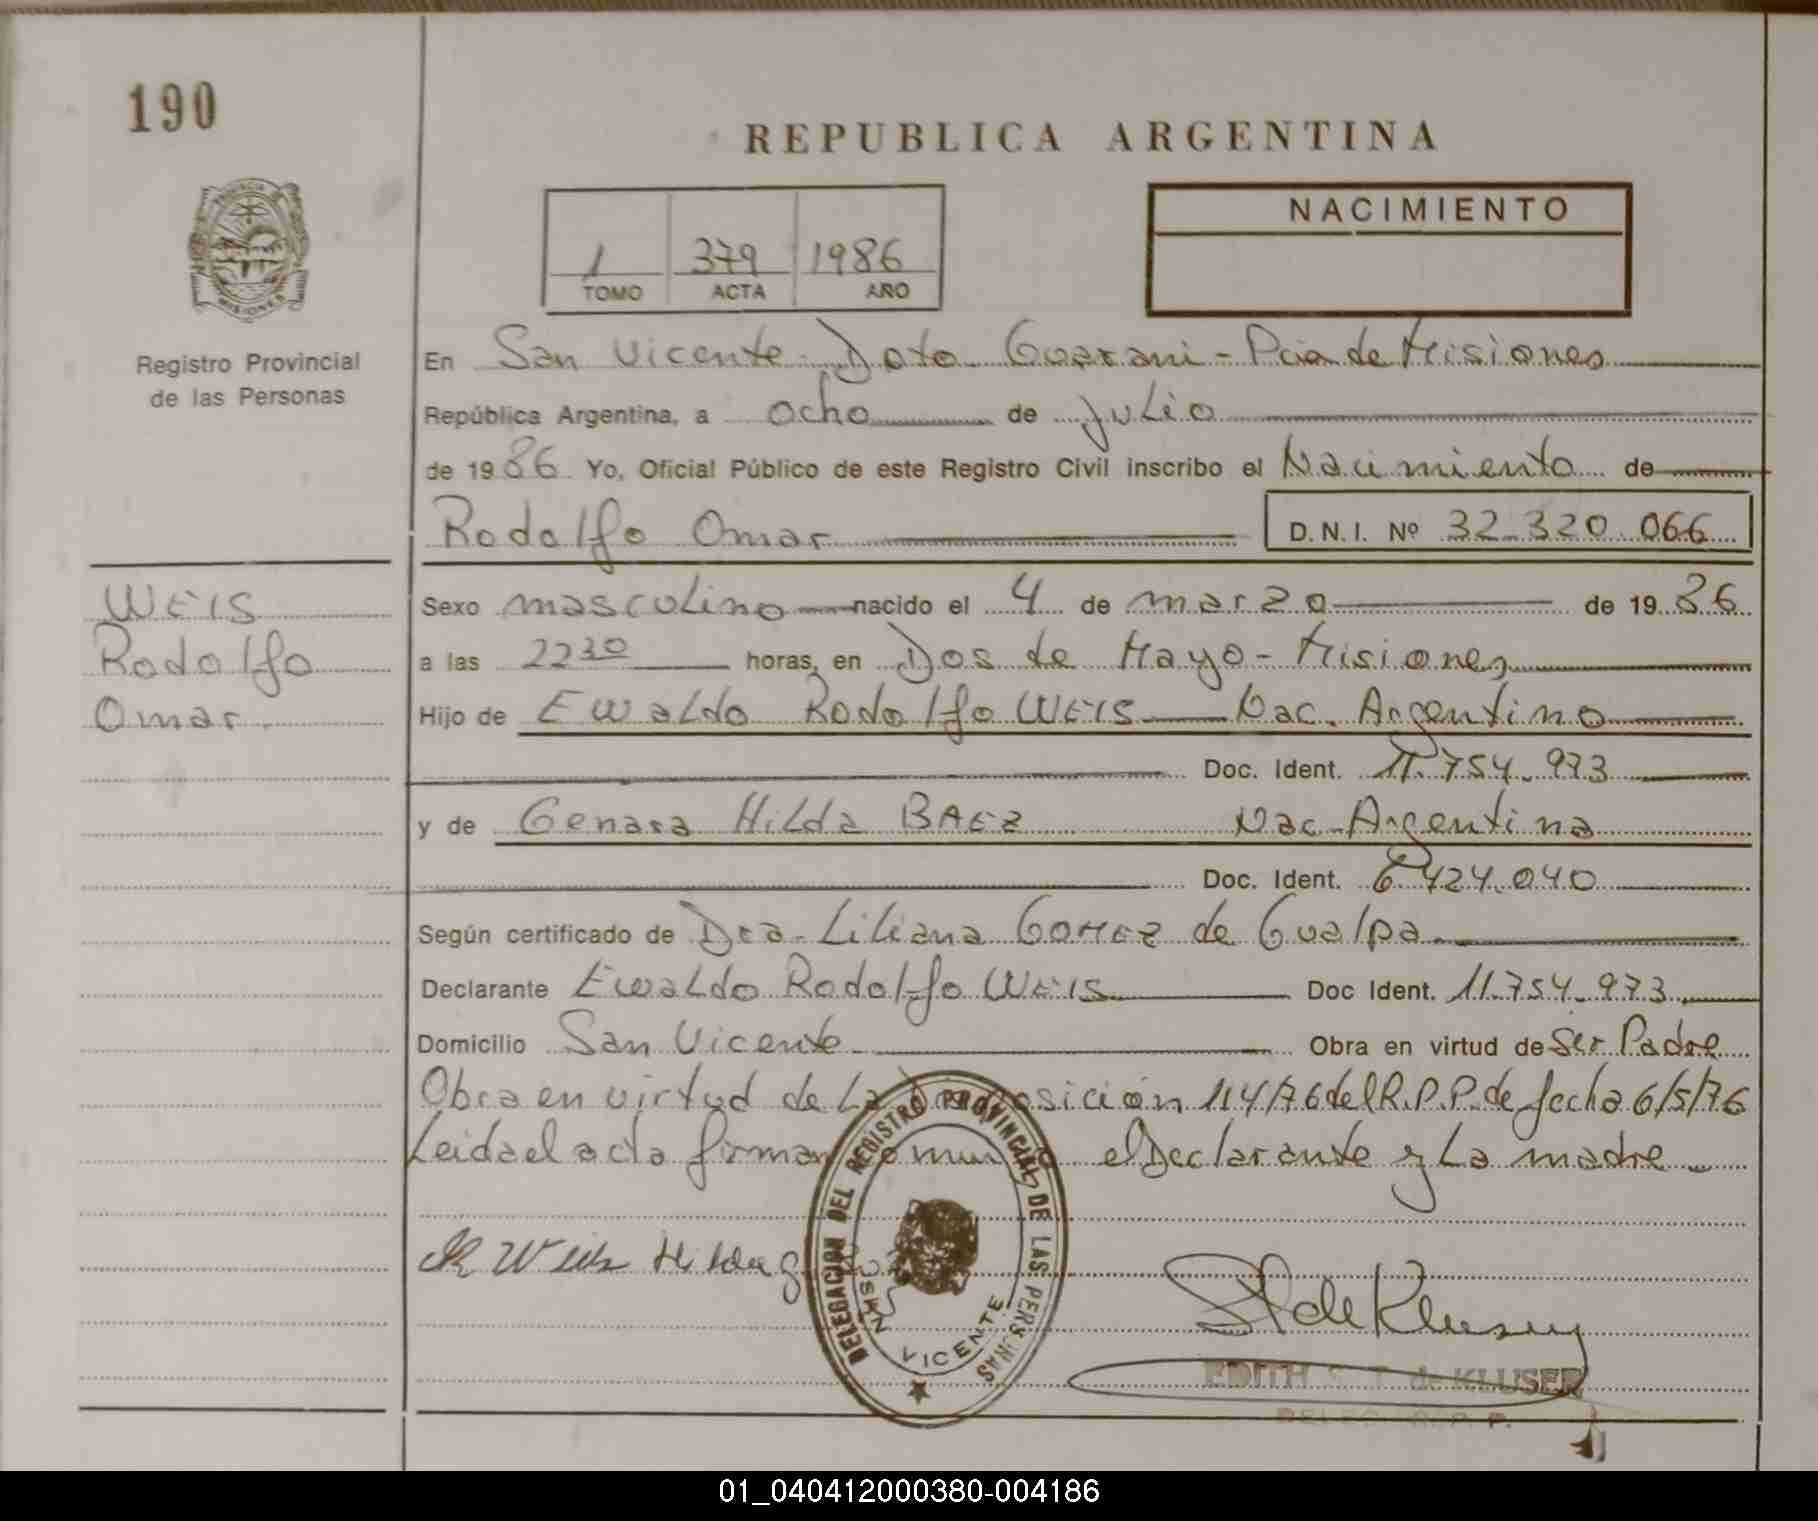 190
REPUBLICA ARGENTINA
NACIMIENTO
1 379 1986
TOMO ACTA AÑO
PROVINCIA DE MISIONES
Registro Provincial
de las Personas
En San Vicente - Dpto Guarani - Pcia de Misiones
República Argentina, a ocho de Julio
de 1986 Yo, Oficial Público de este Registro Civil inscribo el Nacimiento de
Rodolfo Omar D.N.I. Nº 32.320.066
WEIS
Rodolfo
Omar.
Sexo masculino nacido el 4 de marzo de 1986
a las 2230 horas, en Dos de Mayo - Misiones
Hijo de Ewaldo Rodolfo WEIS Nac. Argentino
Doc. Ident. 11.754.973
y de Genara Hilda BAEZ Nac. Argentina
Doc. Ident. 6.424.040
Según certificado de Dra. Liliana GOMEZ de Gualpa.
Declarante Ewaldo Rodolfo WEIS Doc Ident. 11.754.973
Domicilio San Vicente Obra en virtud de Ser Padre
Obra en virtud de La Disposición 114/76 del R.P.P. de fecha 6/5/76
Leida el acta firman conmigo el Declarante y La madre
Weis Hilda
DELEGACION DEL REGISTRO PROVINCIAL DE LAS PERSONAS
VICENTE
de Kluser
EDITH S. T. de KLUSER
01_040412000380-004186